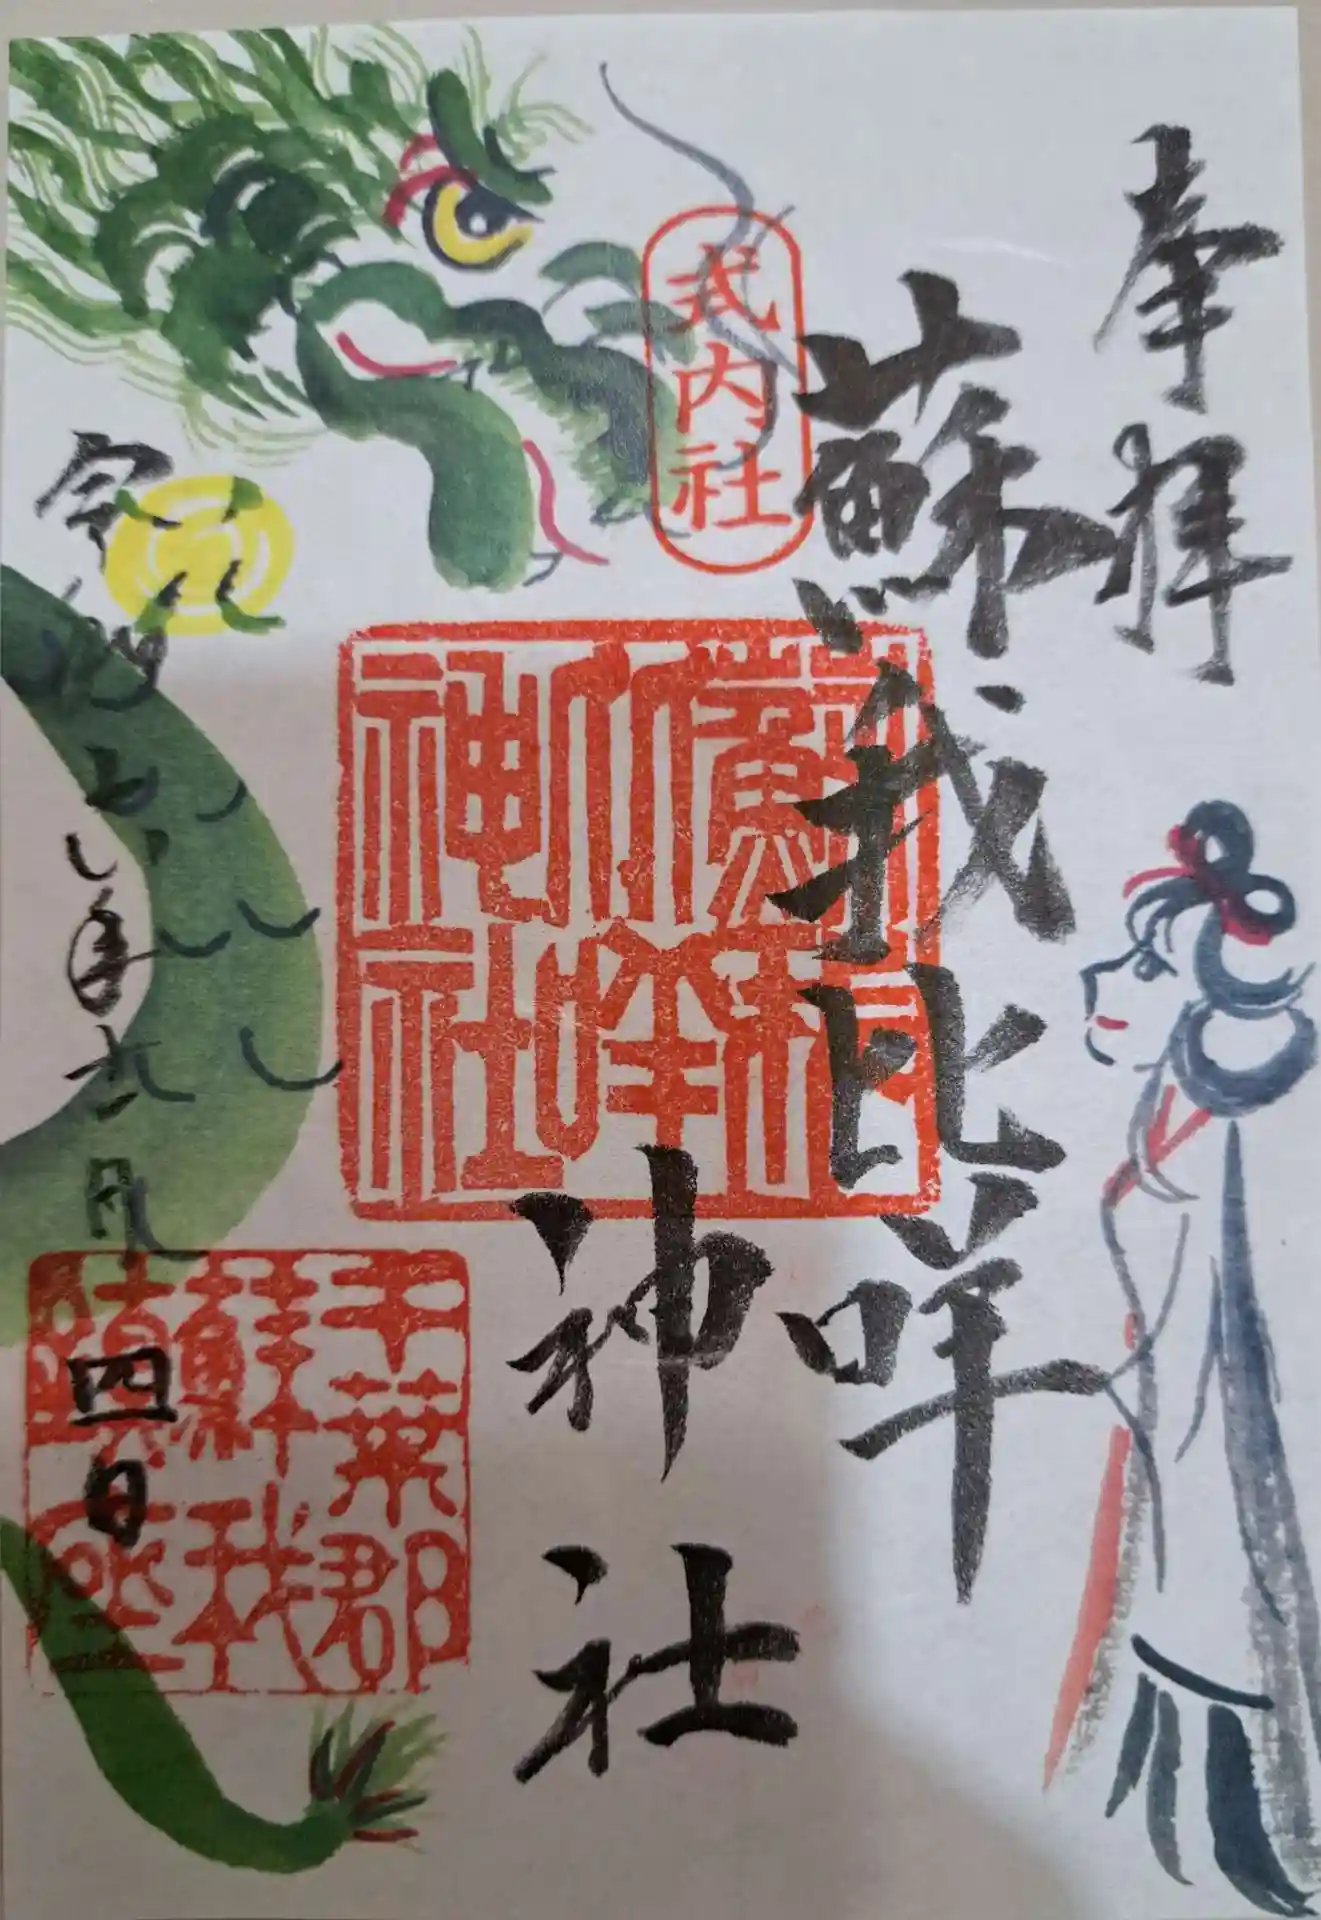 奉拝
蘇我比咩
神社
式内社
比咩
神社
令和七年六月四日
千葉郡
蘇我
鎮座